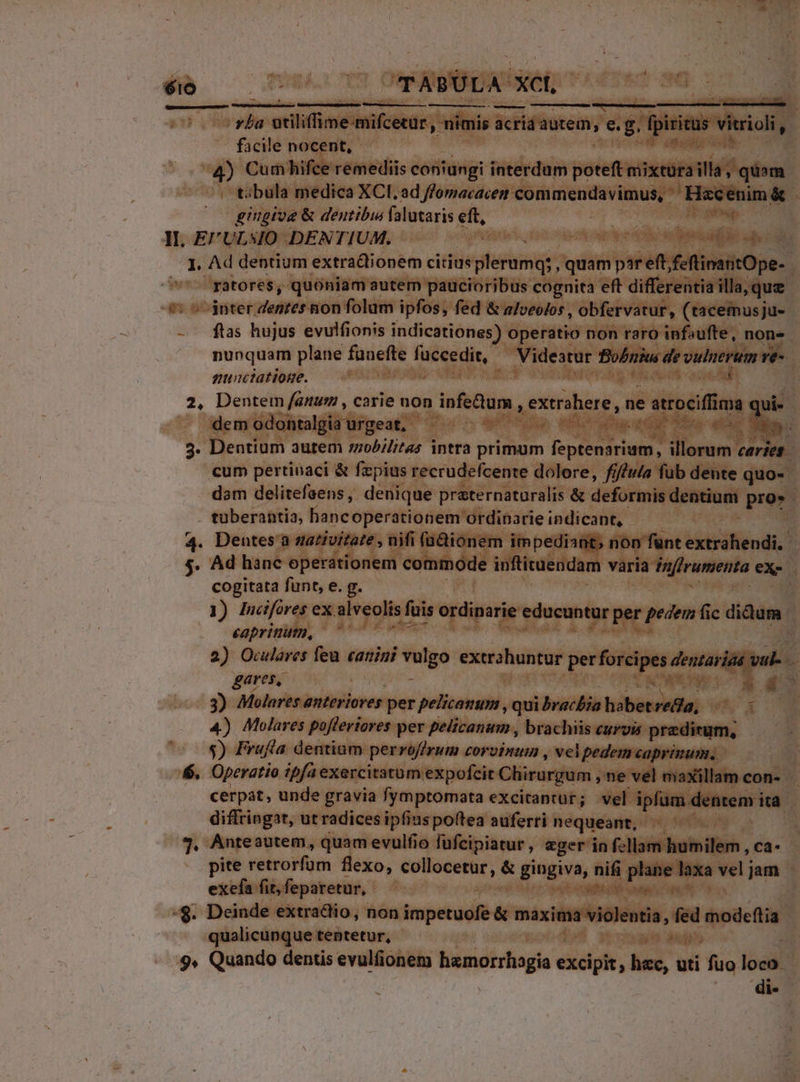 610 TABULA XCI,
rba utiliſſime miſcetur, nimis acria autem, e. g. ſpiritus vitrioli,
facile nocent,
4) Cum hiſce remediis coniungi interdum poteſt mixtura illa, quam
tabula medica XCI, ad ſtomacacen commendavimus, Hæc enim &
gingivæ & dentibus ſalutaris eſt,
II, EVULSIO DENTIUM.
1. Ad dentium extractionem citius plerumq; , quam par eſt, feſtinant Ope-
ratores, quoniam autem paucioribus cognita eſt differentia illa, quæ
inter dentes non ſolum ipſos, ſed & alveolos, obſervatur, (tacemus ju-
ſtas hujus evulſionis indicationes) operatio non raro infauſte, non-
nunquam plane funeſte ſuccedit, Videatur Bohnius de vulnerum re-
nunciatione.
2, Dentem ſanum, carie non infectum, extrahere, ne atrociſſima qui-
dem odontalgia urgeat,
3. Dentium autem mobilitas intra primum ſeptenarium, illorum caries
cum pertinaci & ſæpius recrudeſcente dolore, fiſtula ſub dente quo-
dam deliteſcens, denique præternaturalis & deformis dentium pro-
tuberantia, hanc operationem ordinarie indicant,
4. Dentes a nativitate, niſi ſuctionem impediant, non ſunt extrahendi.
5. Ad hanc operationem commode inſtituendam varia inſtrumenta ex-
cogitata ſunt, e. g.
1) Inciſores ex alveolis ſuis ordinarie educuntur per pedem ſic dictum
caprinum,
2) Oculares ſeu canini vulgo extrahuntur per forcipes dentarias vul-
gares,
3) Molares anteriores per pelicanum, qui brachia habet recta,
4) Molares poſteriores per pelicanum, brachiis curvis præditum,
5) Fruſta dentium per roſtrum corvinum, vel pedem caprinum.
6, Operatio ipſa exercitatum expoſcit Chirurgum, ne vel maxillam con-
cerpat, unde gravia ſymptomata excitantur; vel ipſum dentem ita
diffringat, ut radices ipſius poſtea auferri nequeant,
7, Ante autem, quam evulſio ſuſcipiatur, æger in ſellam humilem, ca-
pite retrorſum flexo, collocetur, & gingiva, niſi plane laxa vel jam
exeſa ſit, ſeparetur,
8. Deinde extractio, non impetuoſe & maxima violentia, ſed modeſtia
qualicunque tentetur,
9, Quando dentis evulſionem hæmorrhagia excipit, hæc, uti ſuo loco
di-